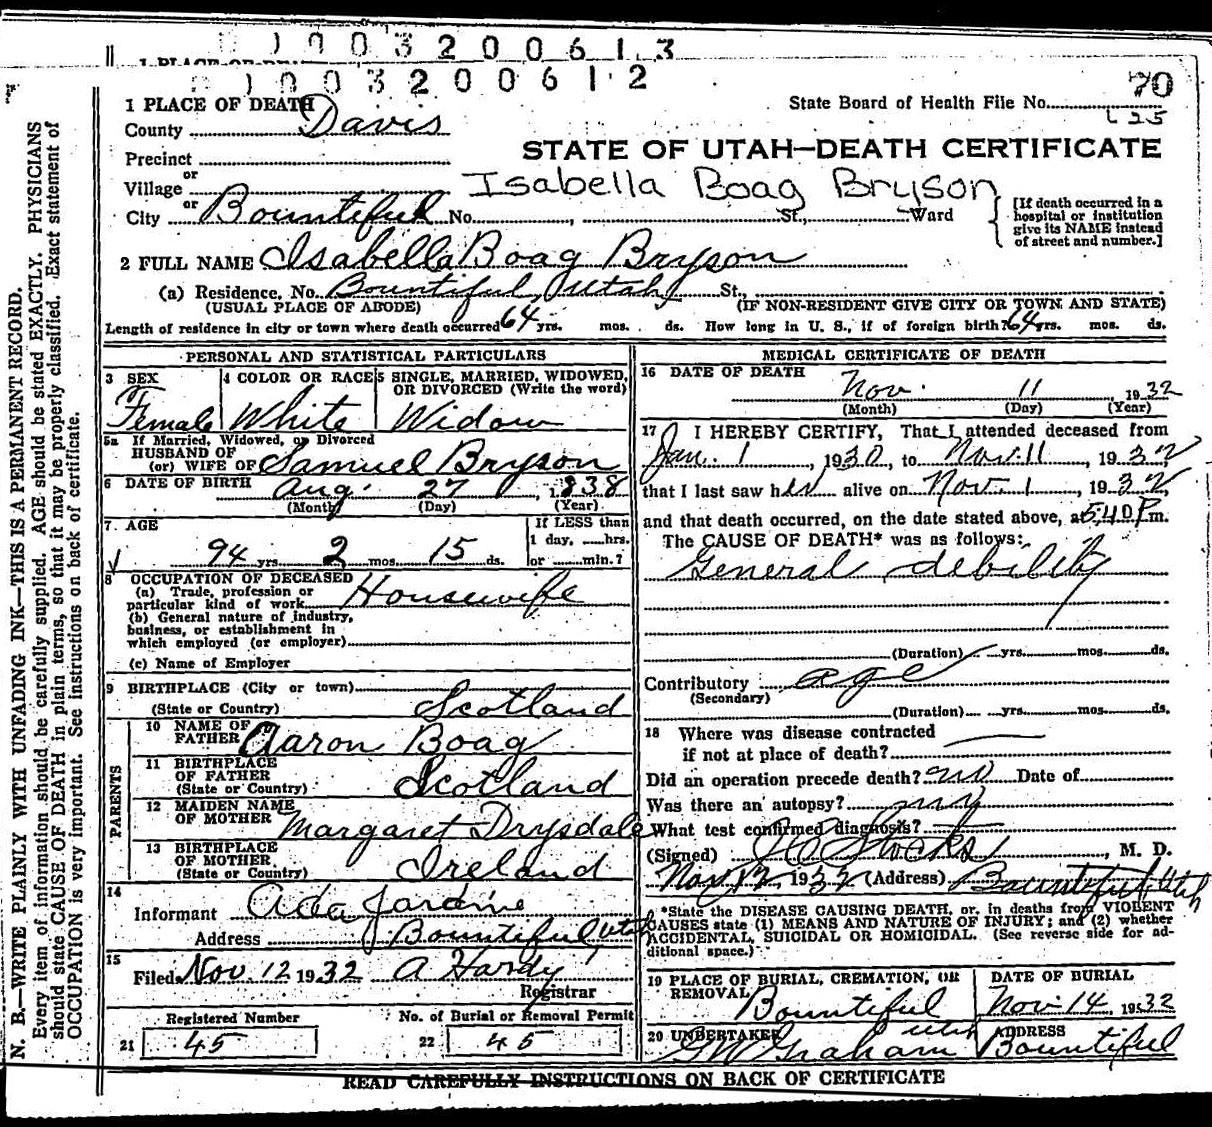 1003200613
1003200612
70
1 PLACE OF DEATH
State Board of Health File No.
County Davis
Precinct
STATE OF UTAH—DEATH CERTIFICATE
or
Village
Isabella Boag Bryson
or
City Bountiful No. St., Ward
[If death occurred in a hospital or institution give its NAME instead of street and number.]
2 FULL NAME Isabella Boag Bryson
(a) Residence, No. Bountiful, Utah St.,
(USUAL PLACE OF ABODE) (IF NON-RESIDENT GIVE CITY OR TOWN AND STATE)
Length of residence in city or town where death occurred 64 yrs. mos. ds. How long in U. S., if of foreign birth? 64 yrs. mos. ds.
PERSONAL AND STATISTICAL PARTICULARS
3 SEX
Female
4 COLOR OR RACE
White
5 SINGLE, MARRIED, WIDOWED, OR DIVORCED (Write the word)
Widow
5a If Married, Widowed, or Divorced
HUSBAND OF
(or) WIFE OF Samuel Bryson
6 DATE OF BIRTH Aug. 27, 1838
(Month) (Day) (Year)
7. AGE
94 yrs. 2 mos. 15 ds.
If LESS than
1 day, hrs.
or min.?
8 OCCUPATION OF DECEASED
(a) Trade, profession or
particular kind of work Housewife
(b) General nature of industry,
business, or establishment in
which employed (or employer)
(c) Name of Employer
9 BIRTHPLACE (City or town)
(State or Country) Scotland
PARENTS
10 NAME OF
FATHER Aaron Boag
11 BIRTHPLACE
OF FATHER
(State or Country) Scotland
12 MAIDEN NAME
OF MOTHER Margaret Drysdale
13 BIRTHPLACE
OF MOTHER
(State or Country) Ireland
14
Informant Ada Jardine
Address Bountiful Utah
15
Filed Nov. 12 1932 A Hardy
Registrar
Registered Number
21 45
No. of Burial or Removal Permit
22 45
MEDICAL CERTIFICATE OF DEATH
16 DATE OF DEATH
Nov. 11 1932
(Month) (Day) (Year)
17 I HEREBY CERTIFY, That I attended deceased from
Jan. 1, 1930, to Nov. 11, 1932
that I last saw her alive on Nov. 1, 1932,
and that death occurred, on the date stated above, at 5:40 P.m.
The CAUSE OF DEATH* was as follows:
General debility
(Duration) yrs. mos. ds.
Contributory age
(Secondary)
(Duration) yrs. mos. ds.
18 Where was disease contracted
if not at place of death?
Did an operation precede death? no Date of
Was there an autopsy?
What test confirmed diagnosis?
(Signed) Stocks, M. D.
Nov 12, 1932 (Address) Bountiful Utah
*State the DISEASE CAUSING DEATH, or, in deaths from VIOLENT
CAUSES state (1) MEANS AND NATURE OF INJURY; and (2) whether
ACCIDENTAL, SUICIDAL OR HOMICIDAL. (See reverse side for ad-
ditional space.)
19 PLACE OF BURIAL, CREMATION, OR
REMOVAL Bountiful Utah
DATE OF BURIAL
Nov. 14, 1932
20 UNDERTAKER
Graham
ADDRESS
Bountiful
READ CAREFULLY INSTRUCTIONS ON BACK OF CERTIFICATE
N. B.—WRITE PLAINLY WITH UNFADING INK—THIS IS A PERMANENT RECORD.
Every item of information should be carefully supplied. AGE should be stated EXACTLY. PHYSICIANS
should state CAUSE OF DEATH in plain terms, so that it may be properly classified. Exact statement of
OCCUPATION is very important. See instructions on back of certificate.